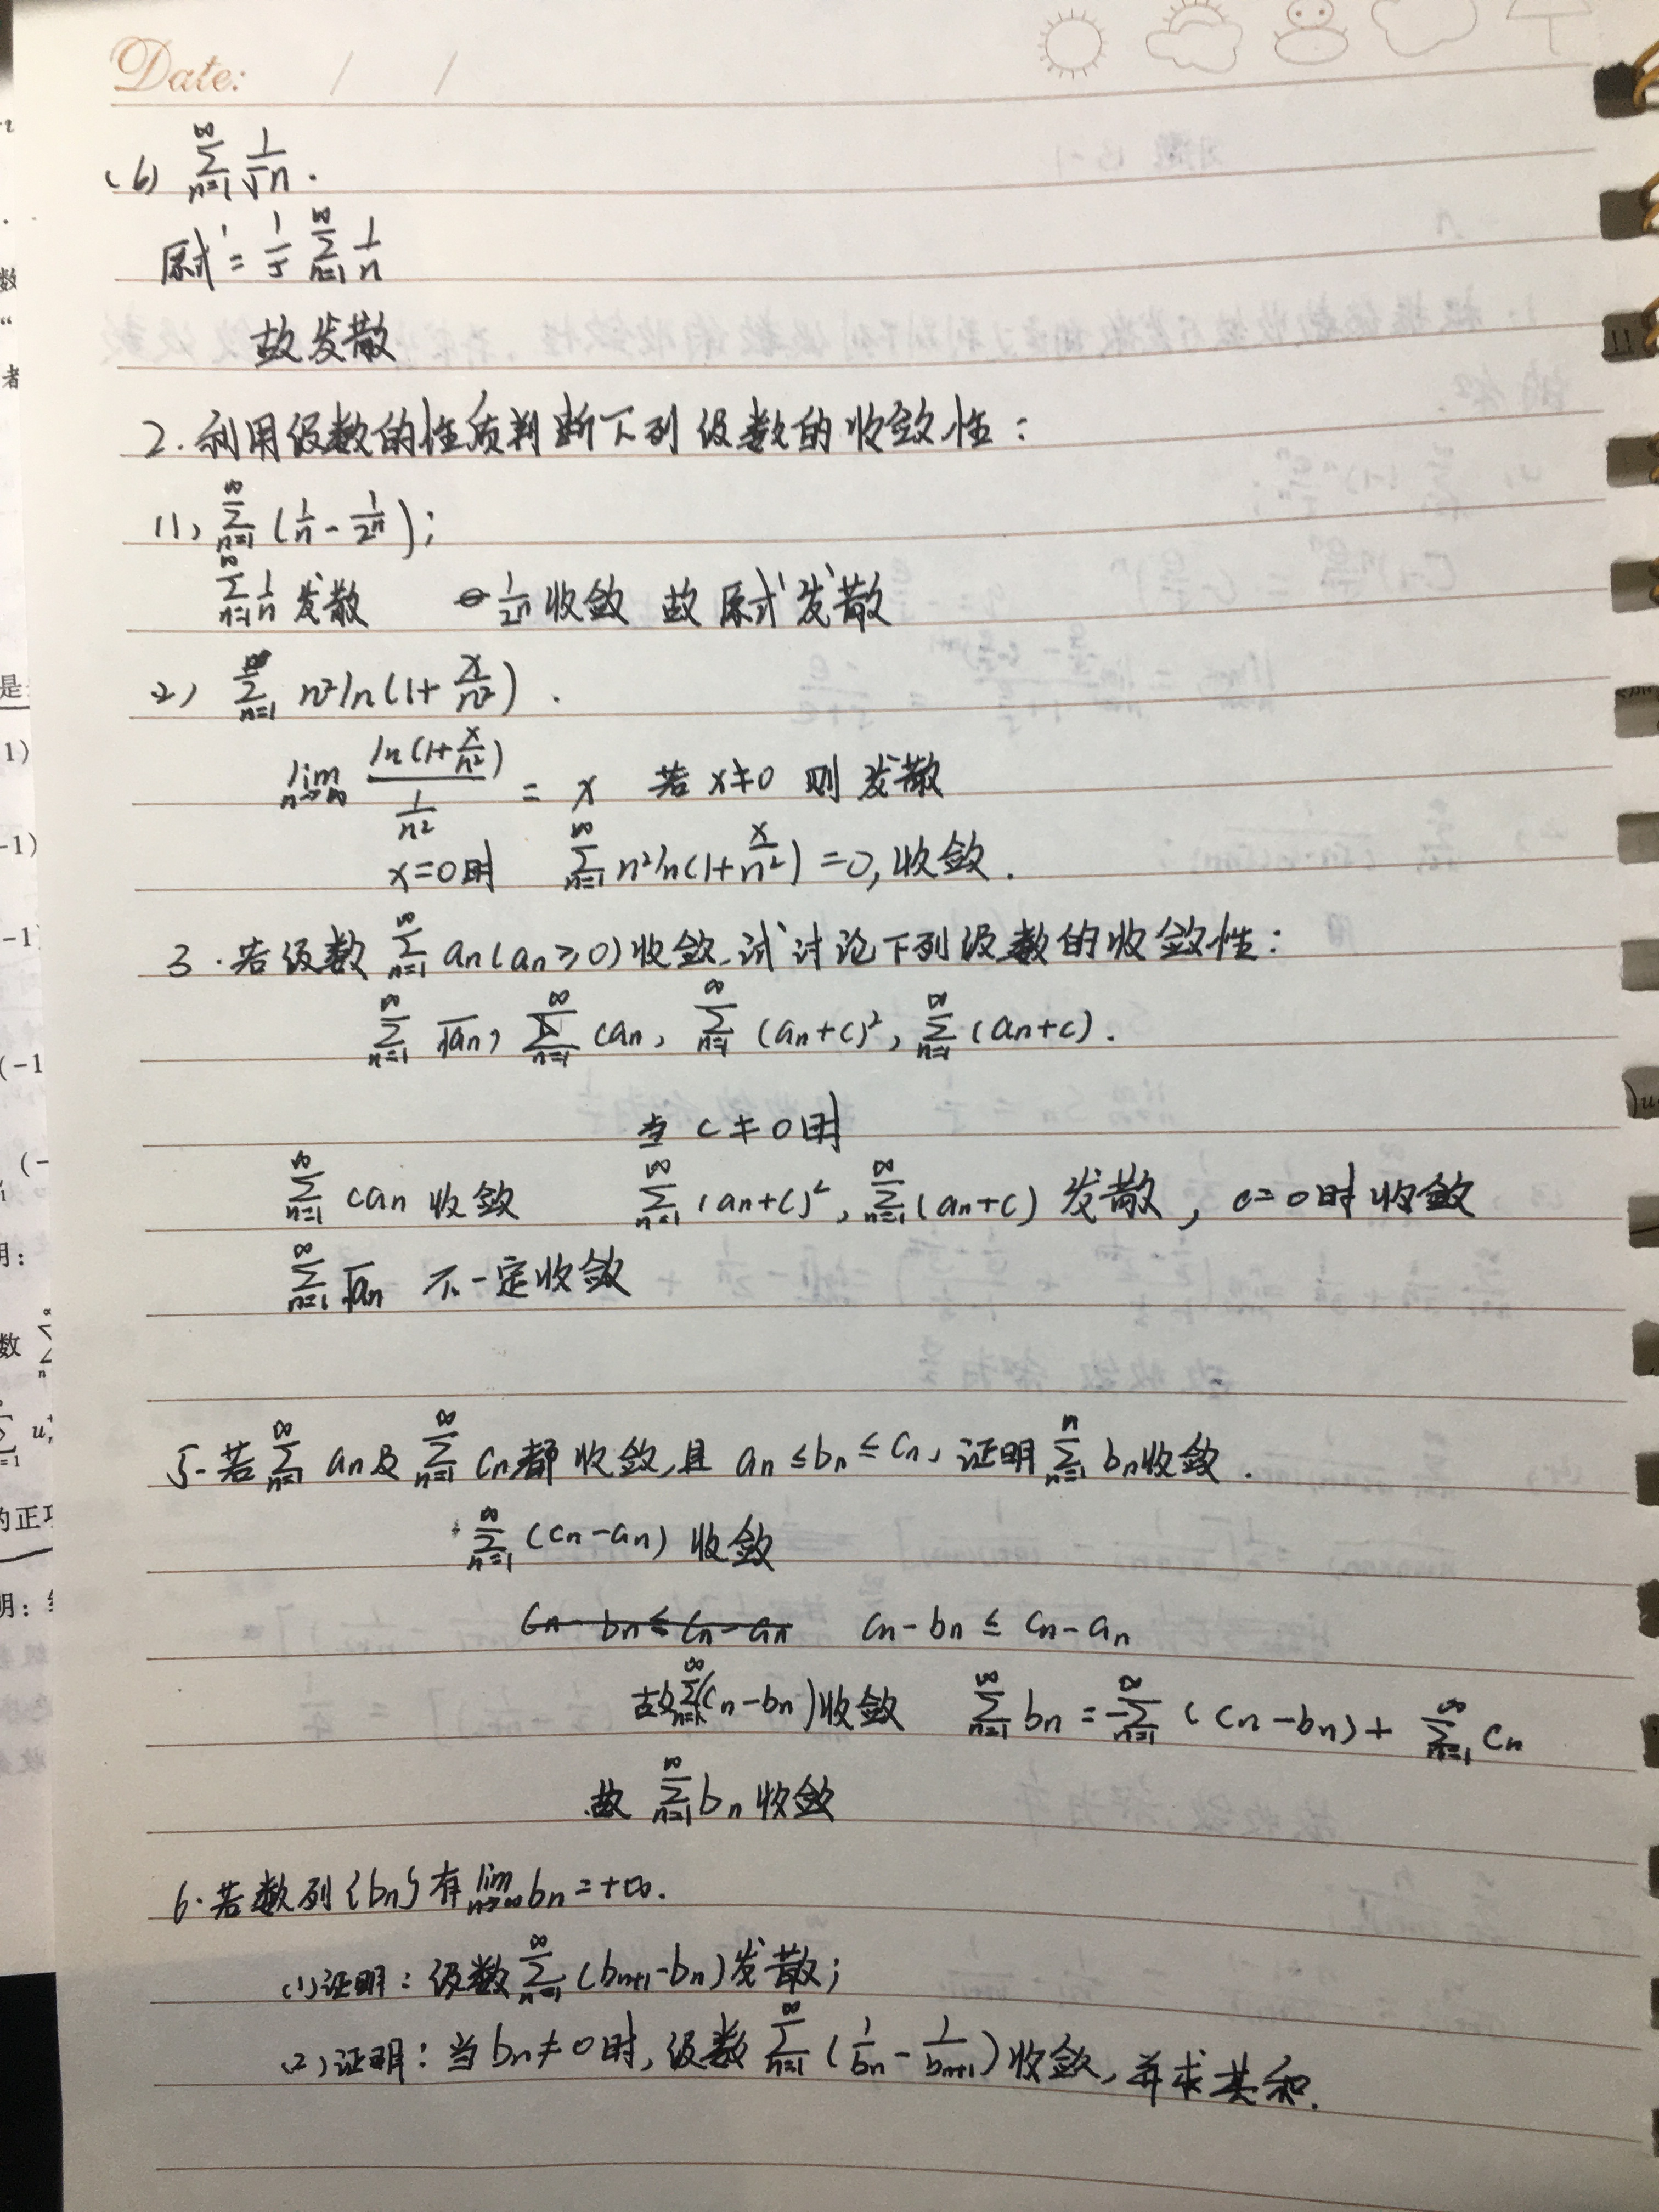 Date: / /
(6) ∑_{n=1}^{∞} 1/(5n).
原式 = 1/5 ∑_{n=1}^{∞} 1/n
故发散
2. 利用级数的性质判断下列级数的收敛性：
(1) ∑_{n=1}^{∞} (1/n - 1/2^n);
∑_{n=1}^{∞} 1/n 发散 1/2^n 收敛 故原式发散
(2) ∑_{n=1}^{∞} n² ln(1+x/n²).
lim_{n→∞} ln(1+x/n²)/(1/n²) = x 若 x≠0 则发散
x=0时 ∑_{n=1}^{∞} n² ln(1+x/n²) = 0, 收敛.
3. 若级数 ∑_{n=1}^{∞} an (an≥0) 收敛, 试讨论下列级数的收敛性：
∑_{n=1}^{∞} √an, ∑_{n=1}^{∞} can, ∑_{n=1}^{∞} (an+c)², ∑_{n=1}^{∞} (an+c).
当 c≠0时
∑_{n=1}^{∞} can 收敛 ∑_{n=1}^{∞} (an+c)², ∑_{n=1}^{∞} (an+c) 发散, c=0时收敛
∑_{n=1}^{∞} √an 不一定收敛
5. 若 ∑_{n=1}^{∞} an 及 ∑_{n=1}^{∞} cn 都收敛, 且 an≤bn≤cn, 证明 ∑_{n=1}^{n} bn 收敛.
∑_{n=1}^{∞} (cn-an) 收敛
cn-bn≤cn-an cn-bn ≤ cn-an
故∑_{n=1}^{∞}(cn-bn)收敛 ∑_{n=1}^{∞} bn = -∑_{n=1}^{∞} (cn-bn) + ∑_{n=1}^{∞} cn
故 ∑_{n=1}^{∞} bn 收敛
6. 若数列{bn}有 lim_{n→∞} bn = +∞.
(1) 证明：级数 ∑_{n=1}^{∞} (bn+1-bn) 发散;
(2) 证明：当 bn≠0时, 级数 ∑_{n=1}^{∞} (1/bn - 1/bn+1) 收敛, 并求其和.